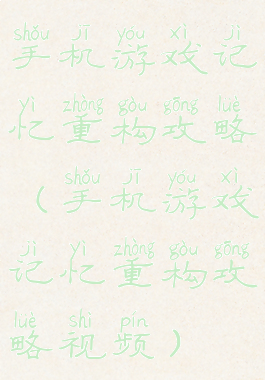 shǒu jī yóu xì jì
手机游戏记
yì zhòng gòu gōng lüè
忆重构攻略
shǒu jī yóu xì
（手机游戏
jì yì zhòng gòu gōng
记忆重构攻
lüè shì pín
略视频）